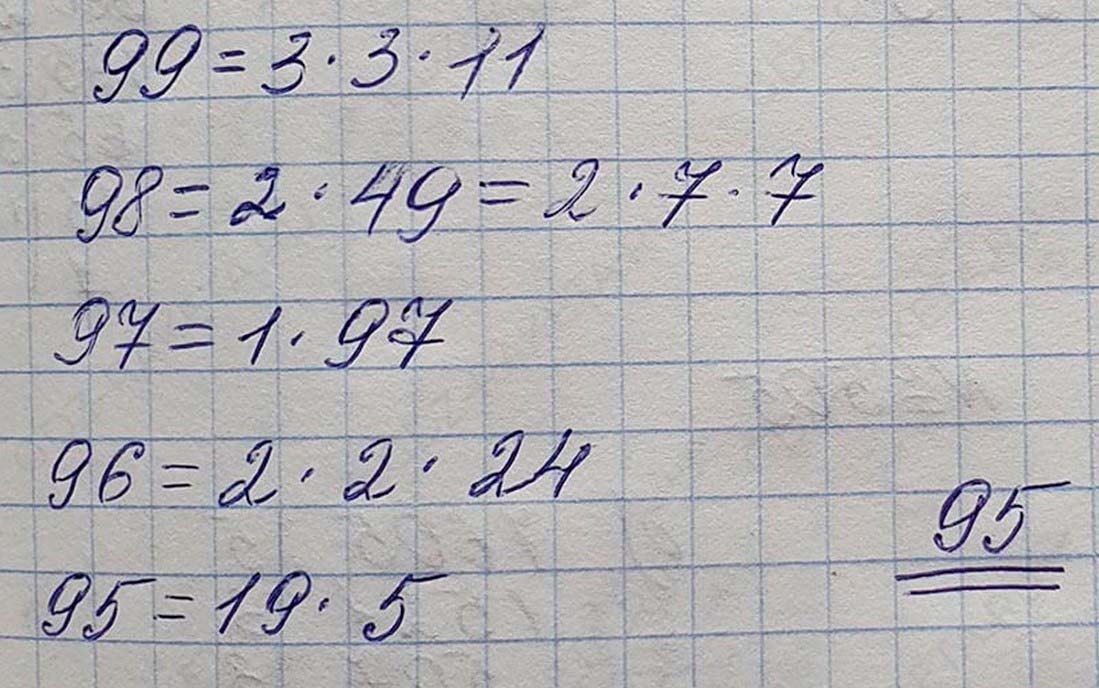 99 = 3 · 3 · 11
98 = 2 · 49 = 2 · 7 · 7
97 = 1 · 97
96 = 2 · 2 · 24
95 = 19 · 5
95